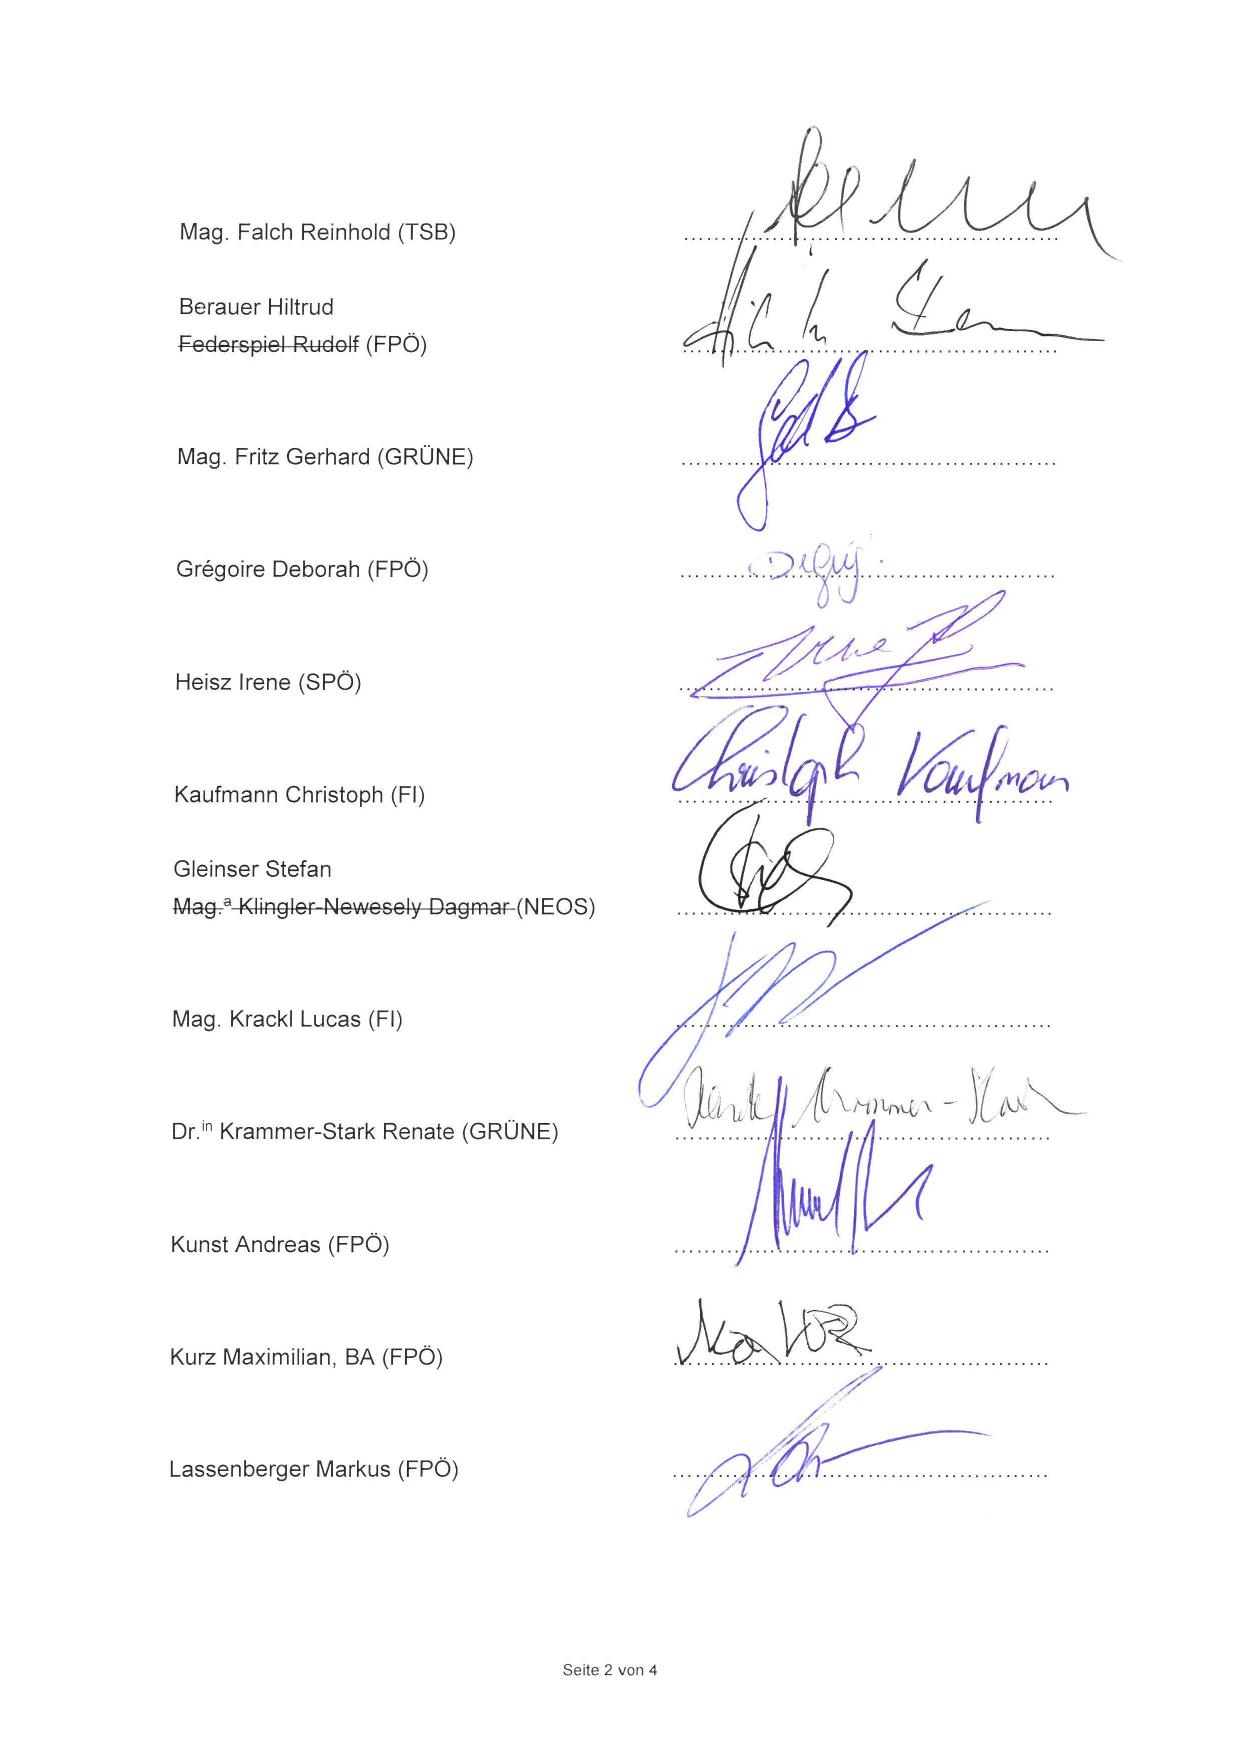 Mag. Falch Reinhold (TSB)
Berauer Hiltrud
Federspiel Rudolf (FPÖ)
Mag. Fritz Gerhard (GRÜNE)
Grégoire Deborah (FPÖ)
Heisz Irene (SPÖ)
Irene
Kaufmann Christoph (FI)
Christoph Kaufmann
Gleinser Stefan
Mag.ª Klingler-Newesely Dagmar (NEOS)
Mag. Krackl Lucas (FI)
Dr.in Krammer-Stark Renate (GRÜNE)
Renate Krammer-Stark
Kunst Andreas (FPÖ)
Kurz Maximilian, BA (FPÖ)
Lassenberger Markus (FPÖ)
Seite 2 von 4